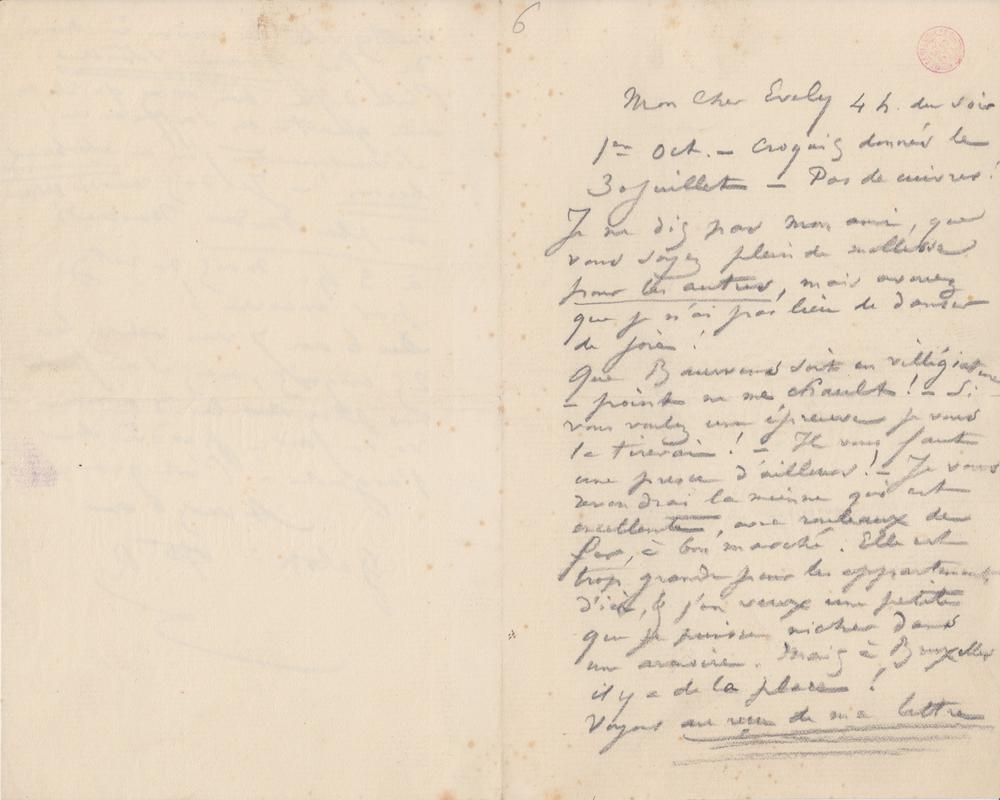 6
Mon Cher Evely 4 h. du soir
1er Oct. — Croquis donnés le
30 Juillet — Pas de cuivres!
Je ne dis pas mon ami, que
vous soyez plein de mollesse
pour les autres, mais avouez
que je n'ai pas lieu de danser
de joie!
Que Bauwens soit en villégiature
— point ne me chault! — Si
vous voulez une épreuve je vous
la tirerai! — Il vous faut
une presse d'ailleurs! — Je vous
revendrai la mienne qui est
excellente, avec rouleaux de
fer, à bon marché. Elle est
trop grande pour les appartements
d'ici, & j'en veux une petite
que je puisse nicher dans
une armoire. Mais à Bruxelles
il y a de la place!
Voyons au reçu de ma lettre